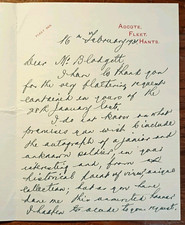 AUCOTE,
FLEET,
HANTS.
16th February 1931
Dear Mr. Blodgett
I have to thank you
for the very flattering request
contained in yours of the
28th January last.
I do not know what
promises run wish to include
the autograph of a junior and
unknown soldier, in your
interesting and, from
historical point of view, unique
collection; but as you have
done me this honour
I hasten to accede to your request,